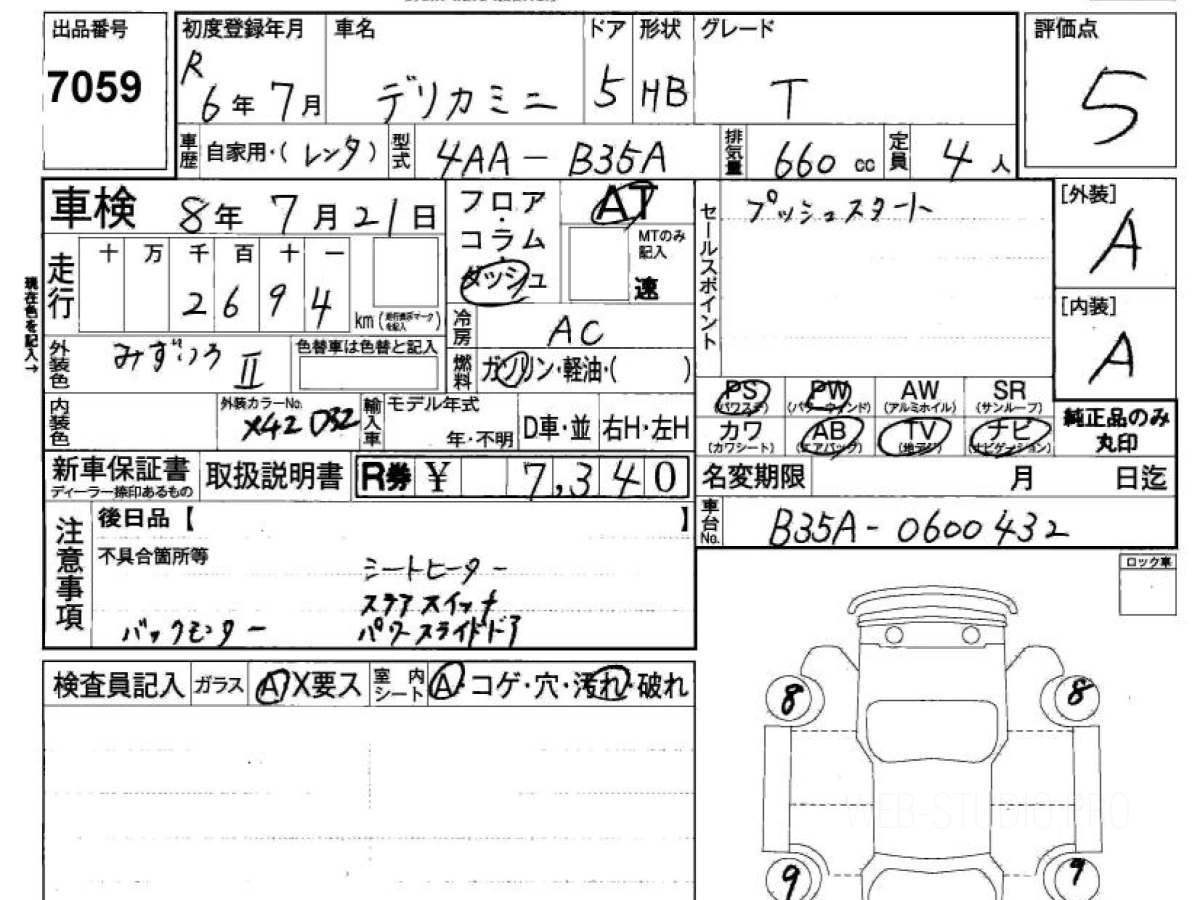 出品番号 初度登録年月 車名 ドア 形状 グレード 評価点
7059 R 6年 7月 デリカミニ 5 HB T 5
車歴 自家用・( レンタ ) 型式 4AA-B35A 排気量 660 cc 定員 4 人
車検 8年 7月 21日 フロア・コラム・ダッシュ AT セールスポイント プッシュスタート [外装] A
MTのみ記入 速
走行 十 万 千 百 十 一
2 6 9 4 km
現在色を記入→
冷房 AC [内装] A
外装色 みずいろ II 色替車は色替と記入 燃料 ガソリン・軽油・( )
PS (パワステ) PW (パワーウィンド) AW (アルミホイル) SR (サンルーフ)
内装色 外装カラーNo. X42 D32 輸入車 モデル年式 年・不明 D車・並 右H・左H
カワ (カワシート) AB (エアバック) TV (地デジ) ナビ (ナビゲーション) 純正品のみ丸印
新車保証書 ディーラー捺印あるもの 取扱説明書 R券 ¥ 7,340 名変期限 月 日迄
注意事項 後日品【 】 車台No. B35A-0600432
不具合箇所等 シートヒーター
ステアスイッチ
バックモニター パワースライドドア
ロック車
検査員記入 ガラス A X要ス 室内シート A・コゲ・穴・汚れ・破れ
8 8
WEB-STUDIO.PRO
9 9